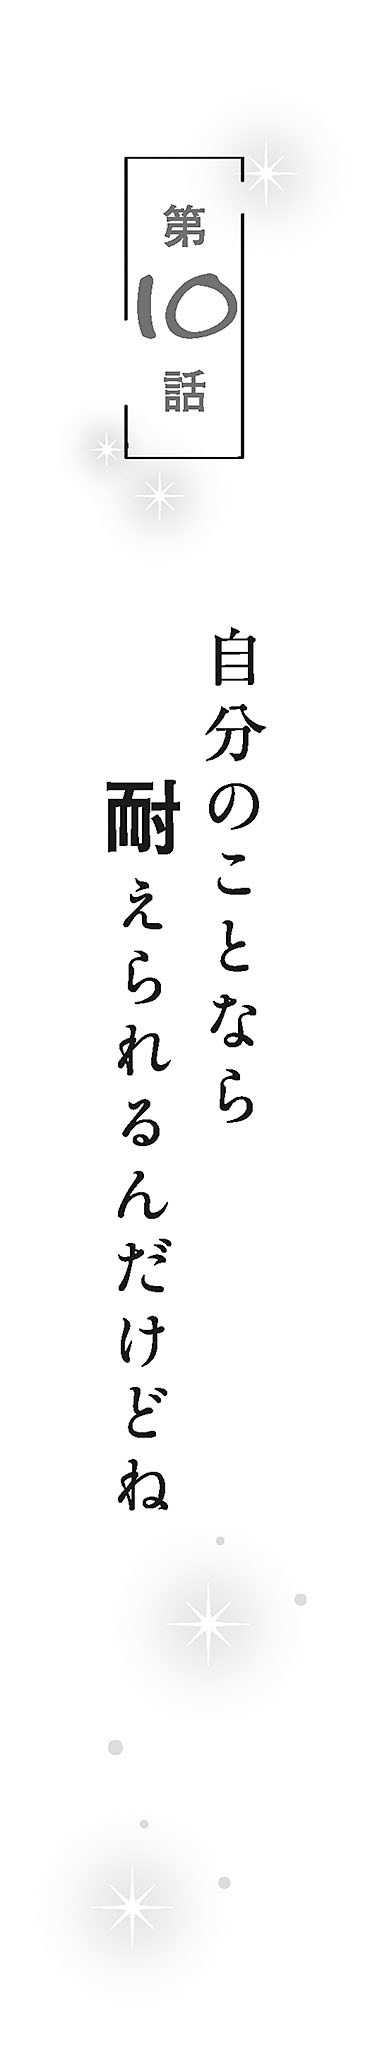 第10話
自分のことなら
耐えられるんだけどね